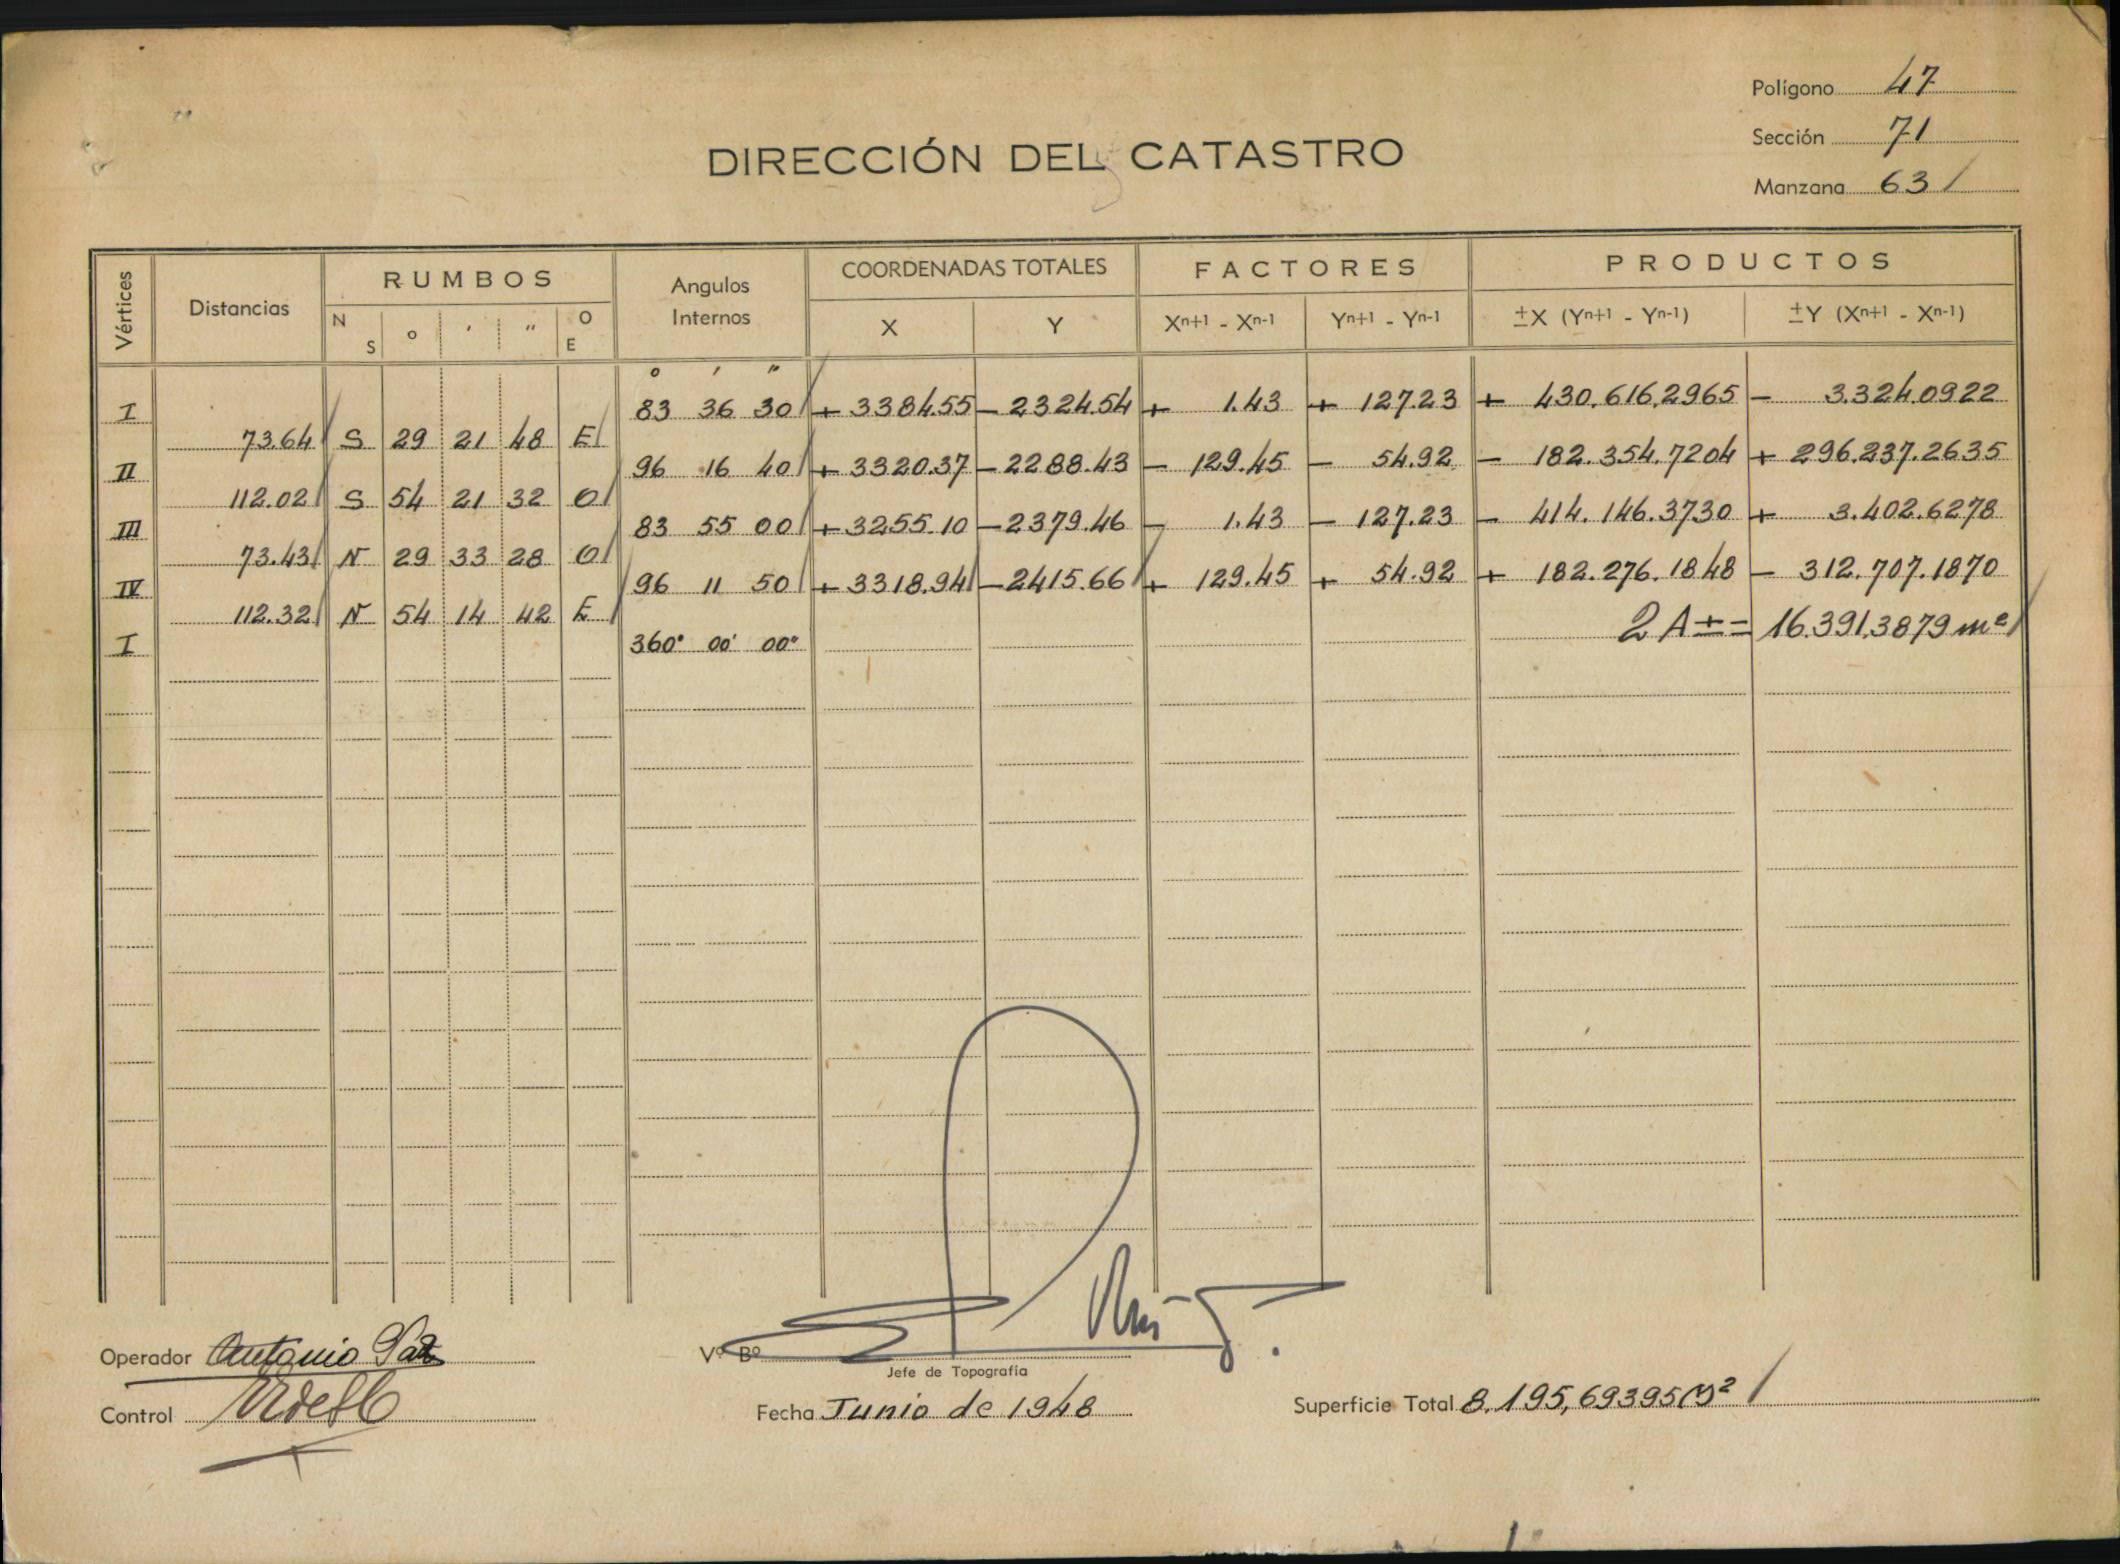 Polígono 47
Sección 71
Manzana 63
DIRECCIÓN DEL CATASTRO
Vértices Distancias RUMBOS Angulos Internos COORDENADAS TOTALES FACTORES PRODUCTOS
N S o ʹ ʺ O E X Y Xn+1 - Xn-1 Yn+1 - Yn-1 ±X (Yn+1 - Yn-1) ±Y (Xn+1 - Xn-1)
o ʹ ʺ
I 83 36 30 + 3384.55 - 2324.54 + 1.43 + 127.23 + 430.616,2965 - 3.324.0922
73.64 S 29 21 48 E
II 96 16 40 + 3320.37 - 2288.43 - 129.45 - 54.92 - 182.354.7204 + 296.237.2635
112.02 S 54 21 32 O
III 83 55 00 + 3255.10 - 2379.46 - 1.43 - 127.23 - 414.146.3730 + 3.402.6278
73.43 N 29 33 28 O
IV 96 11 50 + 3318.94 - 2415.66 + 129.45 + 54.92 + 182.276.1848 - 312.707.1870
112.32 N 54 14 42 E
I 360° 00' 00" 2 A ± = 16.391,3879 m2
Operador Antonio Paz
Vº Bº
Jefe de Topografía
Control
Fecha Junio de 1948
Superficie Total 8.195,69395 M2